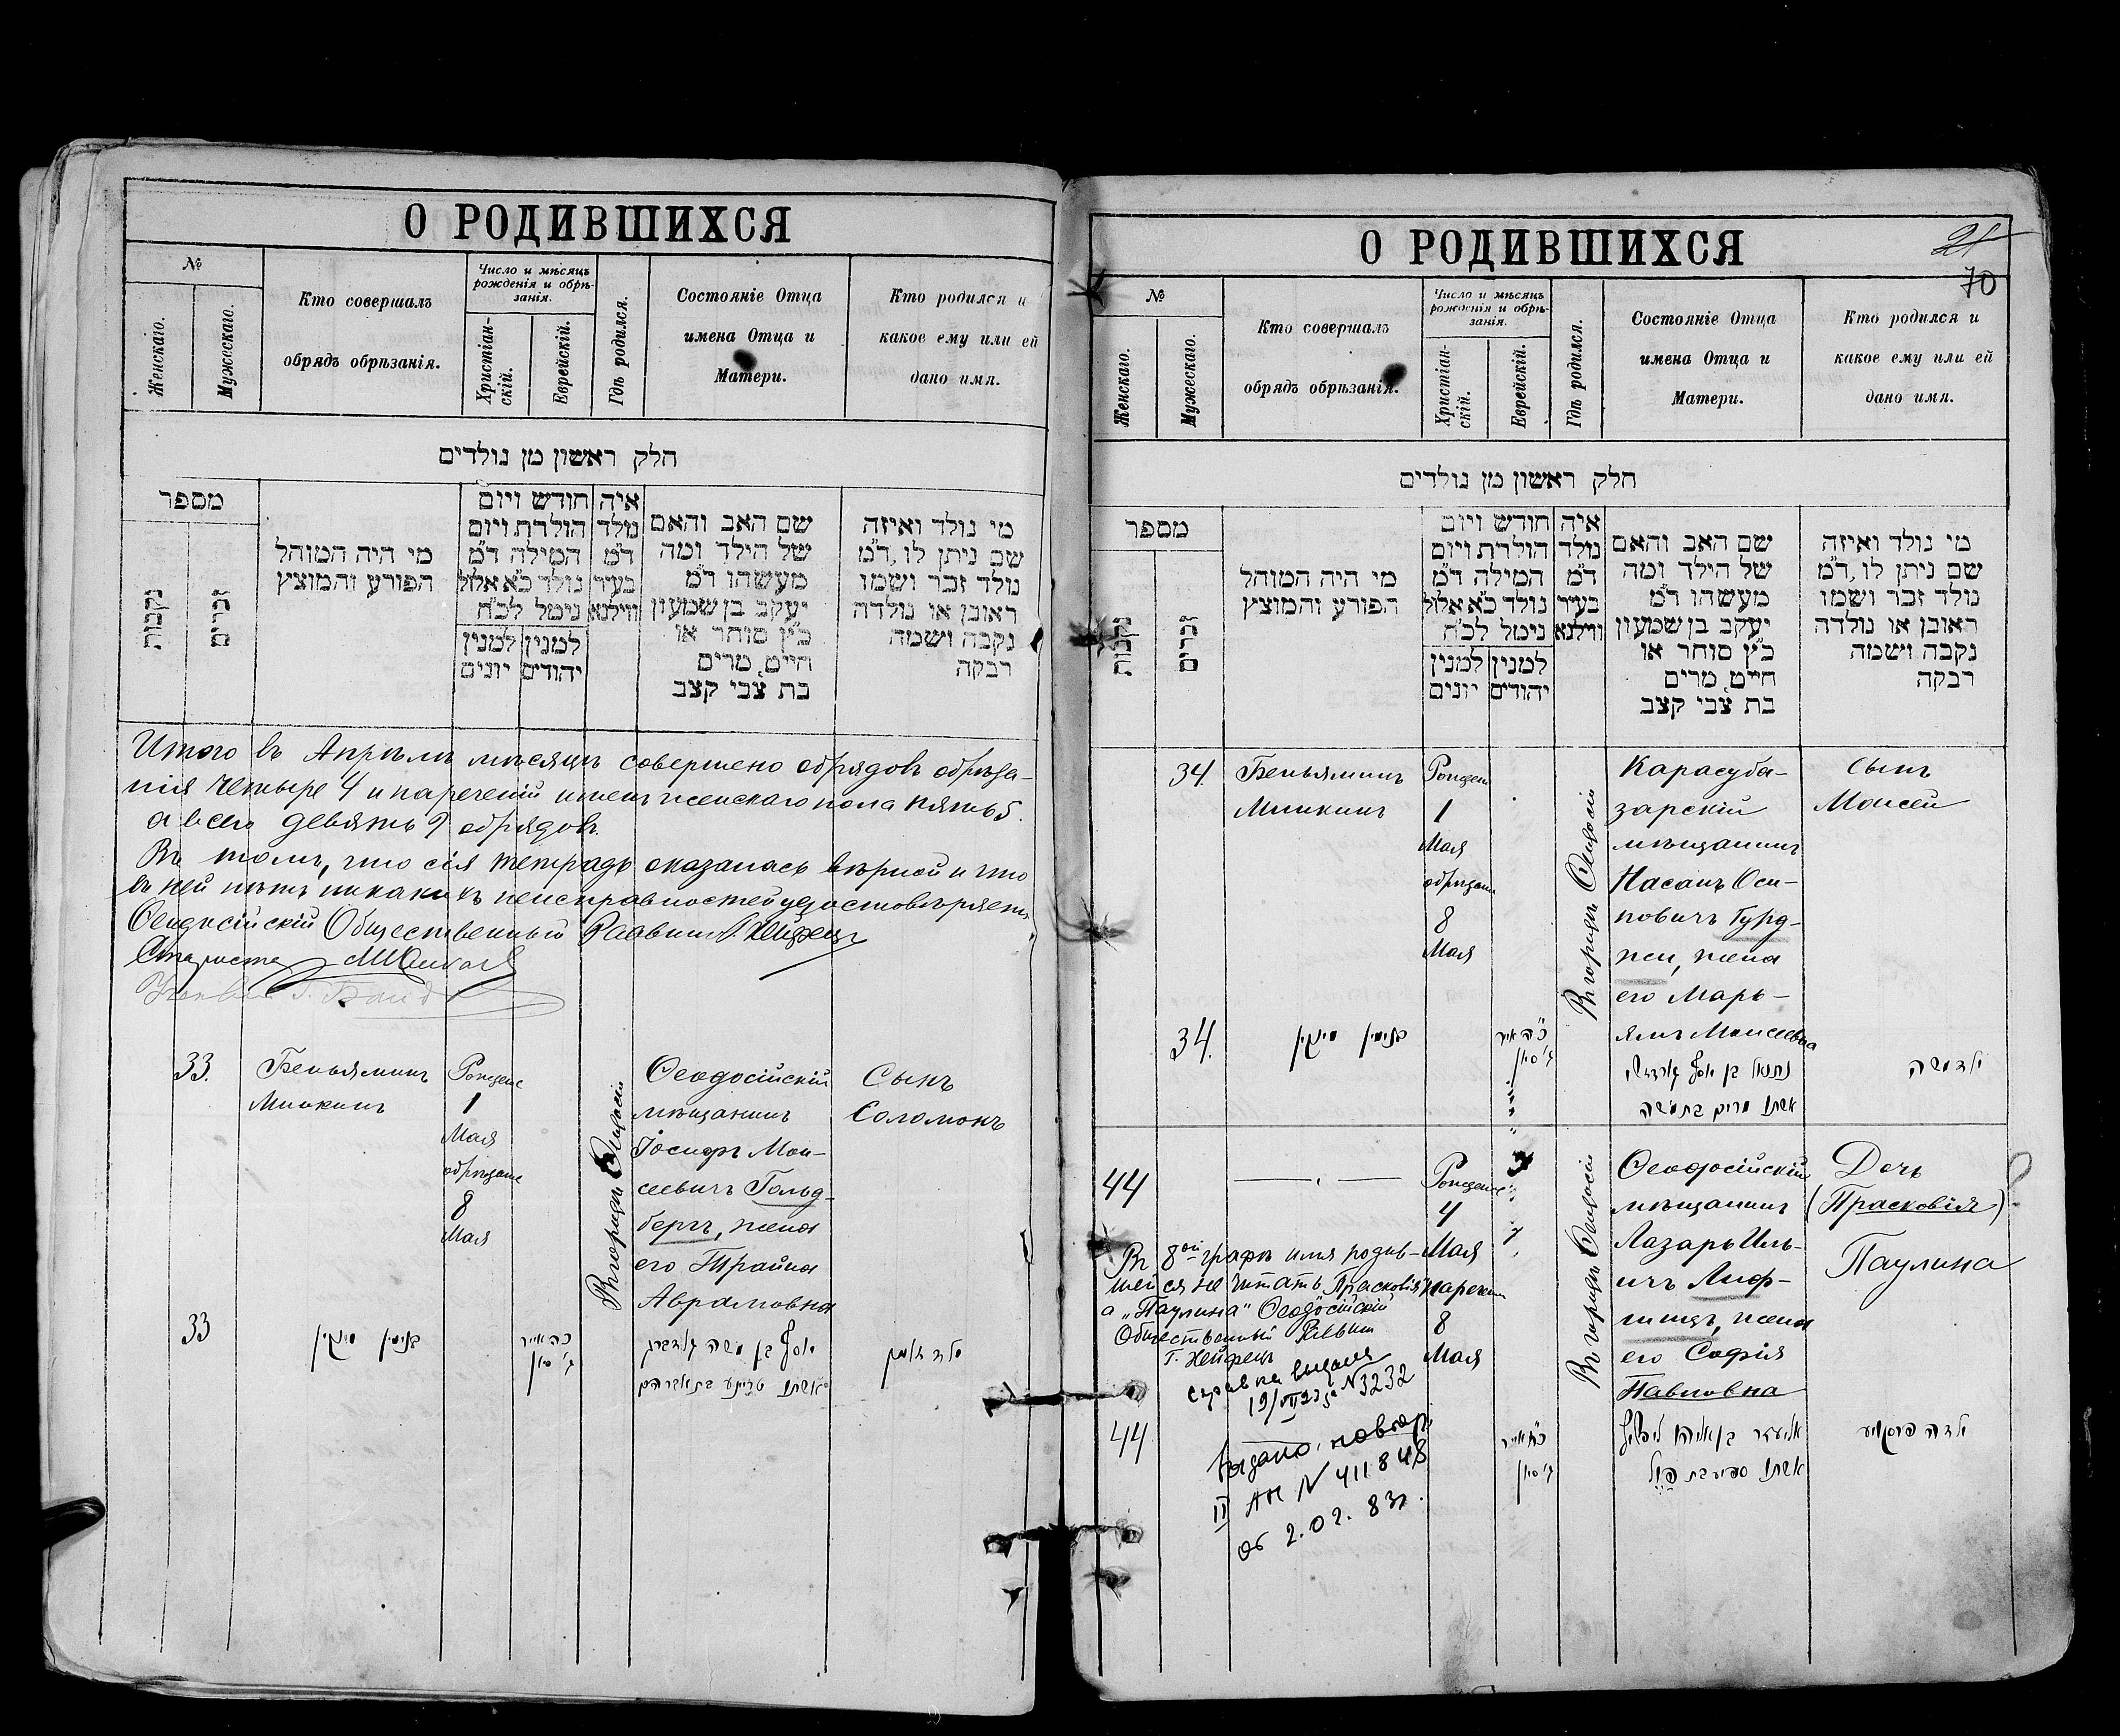 О РОДИВШИХСЯ
№
Женскаго.
Мужескаго.
Кто совершалъ
обрядъ обрѣзанія.
Число и мѣсяцъ
рожденія и обрѣ-
занія.
Христіан-
скій.
Еврейскій.
Гдѣ родился.
Состояніе Отца
имена Отца и
Матери.
Кто родился и
какое ему или ей
дано имя.
חלק ראשון מן נולדים
מספר
נקבות
זכרים
מי היה המוהל
הפורע והמוצץ
חודש ויום
הולדת ויום
המילה ד״מ
נולד כ״א אלול
נימל לכ״ח
למנין יהודים
למנין יונים
איה
נולד
ד״מ
בעיר
ווילנא
שם האב והאם
של הילד ומה
מעשהו ד״מ
יעקב בן שמעון
כ״ץ סוחר או
חייט, מרים
בת צבי קצב
מי נולד ואיזה
שם ניתן לו, ד״מ
נולד זכר ושמו
ראובן או נולדה
נקבה ושמה
רבקה
Итого въ Апрѣлѣ мѣсяцѣ совершено обрядовъ обрѣза-
нія четыре 4 и нареченій именъ женскаго пола пять 5.
а всего девять 9 обрядовъ.
Въ томъ, что сія тетрадь оказалась вѣрной и что
въ ней нѣтъ никакихъ неисправностей удостовѣряетъ
Ѳеодосійскій Общественный Раввинъ
Староста
33.
Беньяминъ
Минкинъ
Рожденъ
1
Мая
обрѣзанъ
8
Мая
Въ городѣ Ѳеодосіи
Ѳеодосійскій
мѣщанинъ
Іосифъ Мои-
сеевичъ Гольд-
бергъ, жена
его Трайна
Аврамовна
Сынъ
Соломонъ
33
בנימין מינקין
כה אייר
יוסף בן משה גאלדבערג
אשתו טריינע בת אברהם
ילד זלמן
О РОДИВШИХСЯ
21
70
№
Женскаго.
Мужескаго.
Кто совершалъ
обрядъ обрѣзанія.
Число и мѣсяцъ
рожденія и обрѣ-
занія.
Христіан-
скій.
Еврейскій.
Гдѣ родился.
Состояніе Отца
имена Отца и
Матери.
Кто родился и
какое ему или ей
дано имя.
חלק ראשון מן נולדים
מספר
נקבות
זכרים
מי היה המוהל
הפורע והמוצץ
חודש ויום
הולדת ויום
המילה ד״מ
נולד כ״א אלול
נימל לכ״ח
למנין יהודים
למנין יונים
איה
נולד
ד״מ
בעיר
ווילנא
שם האב והאם
של הילד ומה
מעשהו ד״מ
יעקב בן שמעון
כ״ץ סוחר או
חייט, מרים
בת צבי קצב
מי נולד ואיזה
שם ניתן לו, ד״מ
נולד זכר ושמו
ראובן או נולדה
נקבה ושמה
רבקה
34.
Беньяминъ
Минкинъ
Рожденъ
1
Мая
обрѣзанъ
8
Мая
Въ городѣ Ѳеодосіи
Карасуба-
зарскій
мѣщанинъ
Насанъ Оси-
повичъ Гурд-
жи, жена
его Марь-
ямъ Моисеевна
Сынъ
Моисей
34.
בנימין מינקין
כ״ה אייר
בן יוסף
אשתו מרים בת משה
ילד משה
44
Рождена
4
Мая
наречена
8
Мая
Въ городѣ Ѳеодосіи
Ѳеодосійскій
мѣщанинъ
Лазарь Иль-
ичъ Лиф-
шицъ, жена
его Софія
Павловна
Дочь
(Прасковія)
Паулина
Въ 8ой графѣ имя родив-
шейся не читать „Прасковія“
а „Паулина“ Ѳеодосійскій
Общественный Раввинъ
Г. Хейфецъ
справка выдана
№3232
44
Выдано повтор.
II АП N 411848
от 2.02.83г.
כ״ח אייר
אליעזר בן אליהו ליפשיץ
אשתו סופיע בת פויל
ילדה פרסקוויע